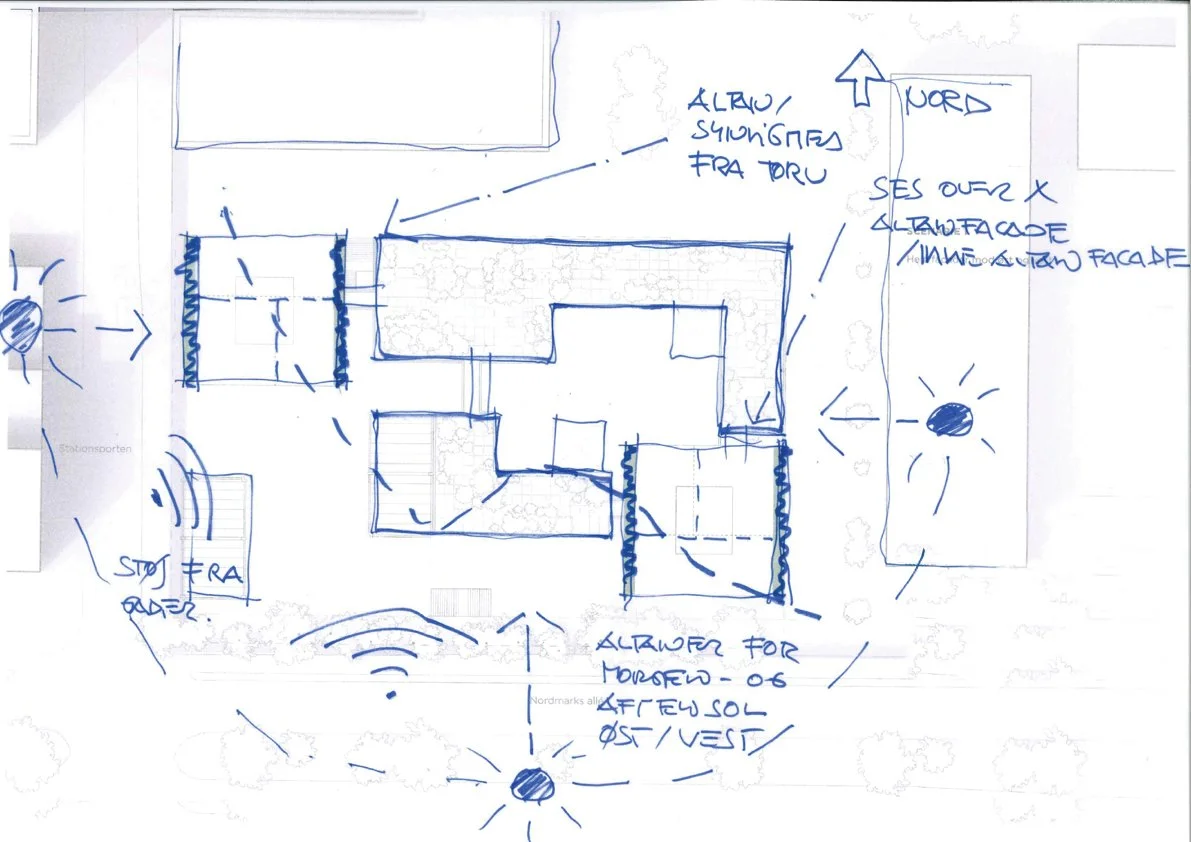 NORD
ALTAN/
SYNLIGHED
FRA TORV
SES OVER X
ALTANFACADE
/INNE ALTAN FACADE
Stationsporten
STØJ FRA
GADER.
ALTANER FOR
MORGEN- OG
AFTENSOL
ØST/VEST
Nordmarks allé